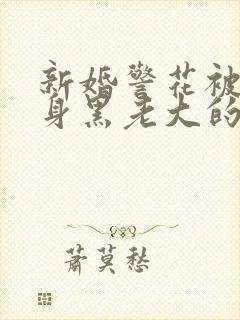 新婚警花被
身黑老大的
萧莫愁